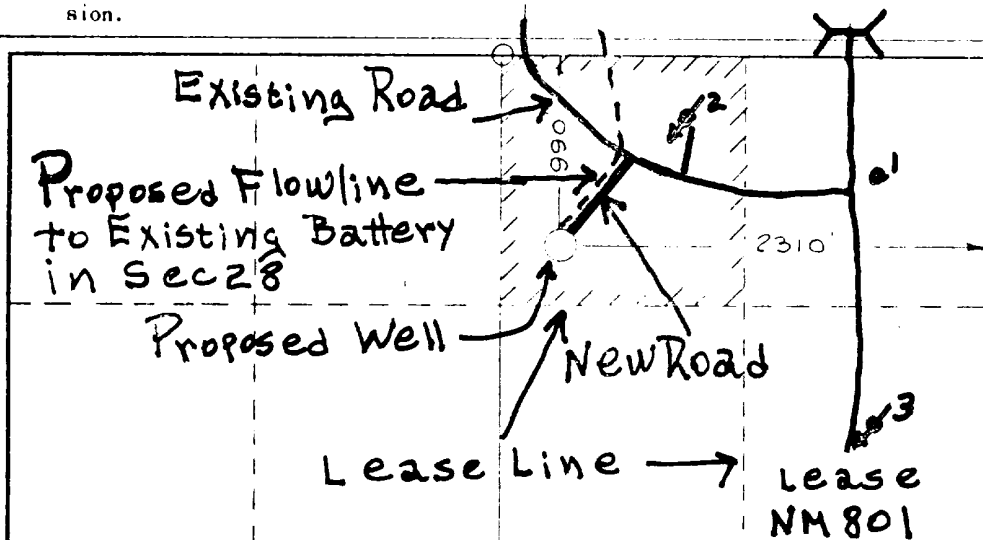 sion.
Existing Road
2
660
Proposed Flowline
to Existing Battery
in Sec 28
1
2310'
Proposed Well
New Road
3
Lease Line
Lease
NM 801